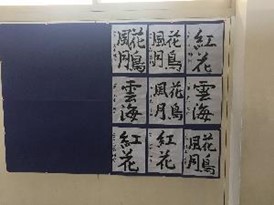 紅花
花鳥
風月
花鳥
風月
雲海
花鳥
風月
雲海
花鳥
風月
紅花
紅花